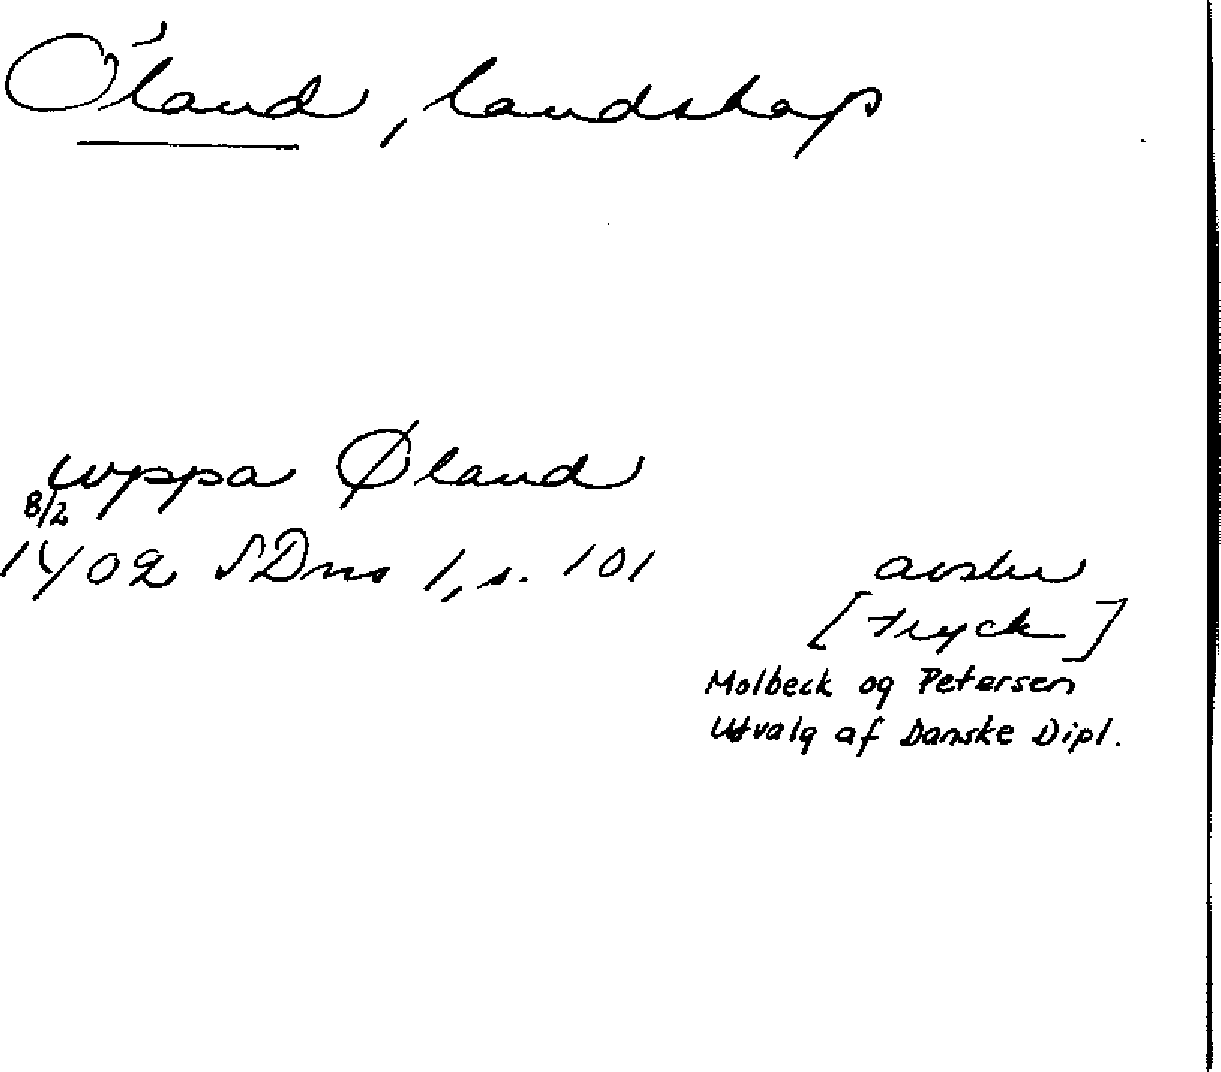 Öland, landskap
uppa Øland
8/2
1402 SDns 1, s. 101
avskr
[tryck]
Molbeck og Petersen
Udvalg af Danske Dipl.